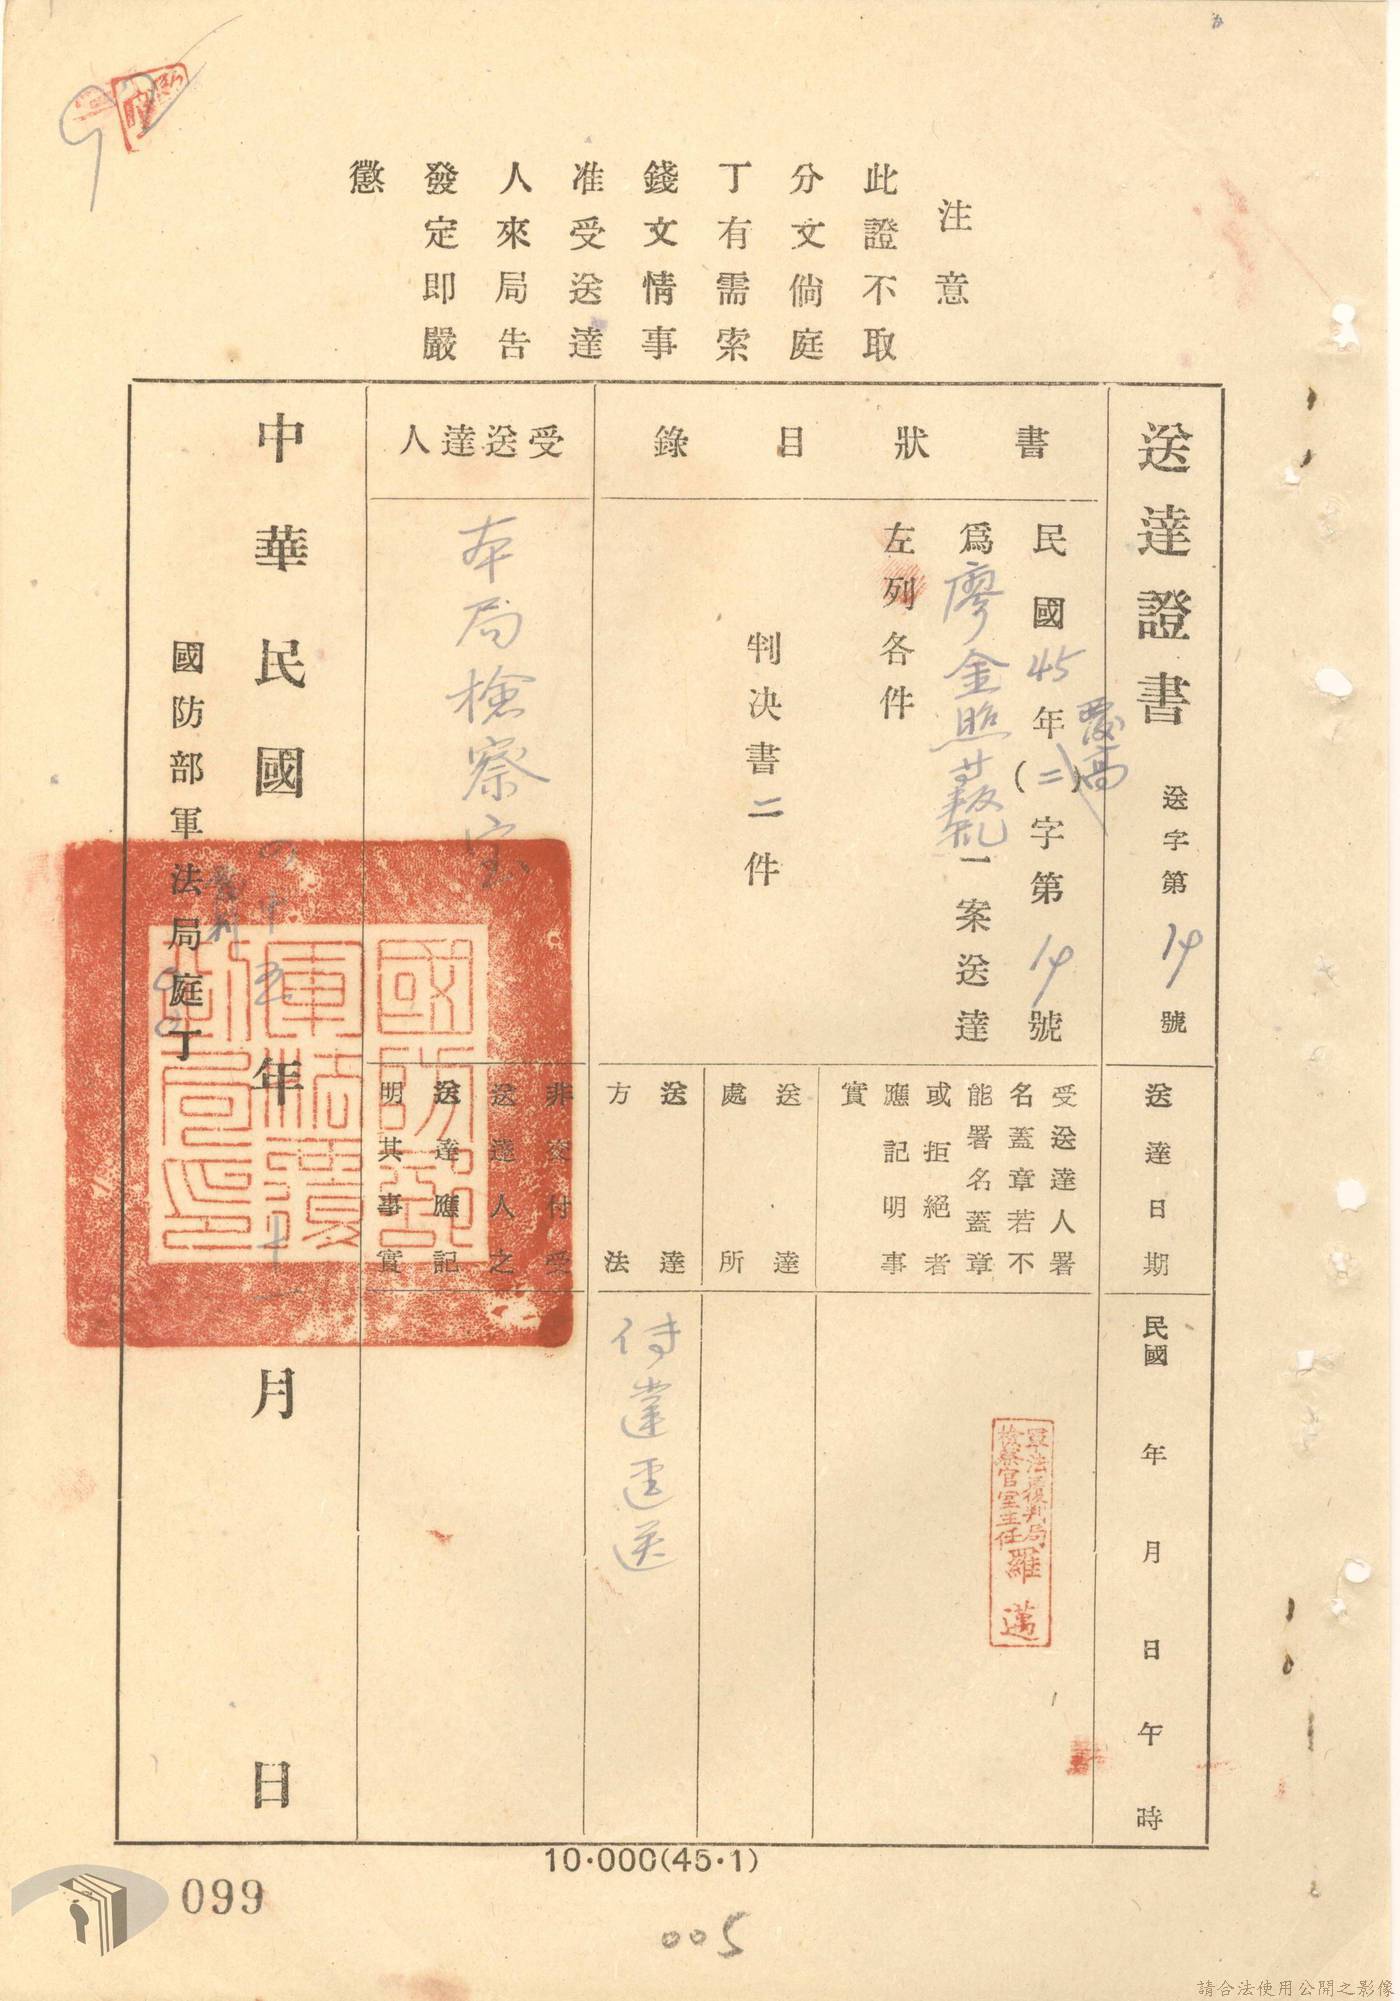 注意
此證不取
分文倘庭
丁有需索
錢文情事
准受送達
人來局告
發定即嚴
懲
送達證書 送字第14號
書狀目錄
民國45年(二)字第14號
覆高
為廖金照叛亂一案送達
左列各件
判決書二件
受送達人
本局檢察室
中華民國四十五年十一月 日
國防部軍法局庭丁
送達日期
民國 年 月 日 午 時
受送達人署
名蓋章若不
能署名蓋章
或拒絕者
應記明事
實
軍法覆判局
檢察官室主任
羅邁
送達
處所
送達
方法
傳達逕送
非交付受
送達人之
送達應記
明其事實
國防部
軍法覆
判局印
10·000(45·1)
099
005
92
請合法使用公開之影像